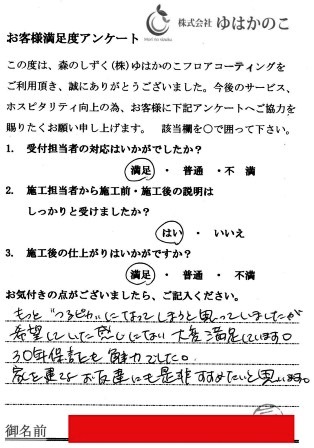 株式会社 ゆはかのこ
Mori no shizuku
お客様満足度アンケート
この度は、森のしずく(株)ゆはかのこフロアコーティングを
ご利用頂き、誠にありがとうございました。今後のサービス、
ホスピタリティ向上の為、お客様に下記アンケートへご協力を
賜りたくお願い申し上げます。 該当欄を○で囲って下さい。
1. 受付担当者の対応はいかがでしたか?
満足 ・ 普通 ・ 不 満
2. 施工担当者から施工前・施工後の説明は
しっかりと受けましたか?
はい ・ いいえ
3. 施工後の仕上がりはいかがですか?
満足 ・ 普通 ・ 不満
お気付きの点がございましたら、ご記入ください。
もっと"つるピカ"になってしまうと思っていましたが
希望していた感じになり 大変満足しています。
30年保証も魅力でした。
家を建てる お友達にも是非すすめたいと思います。
御名前